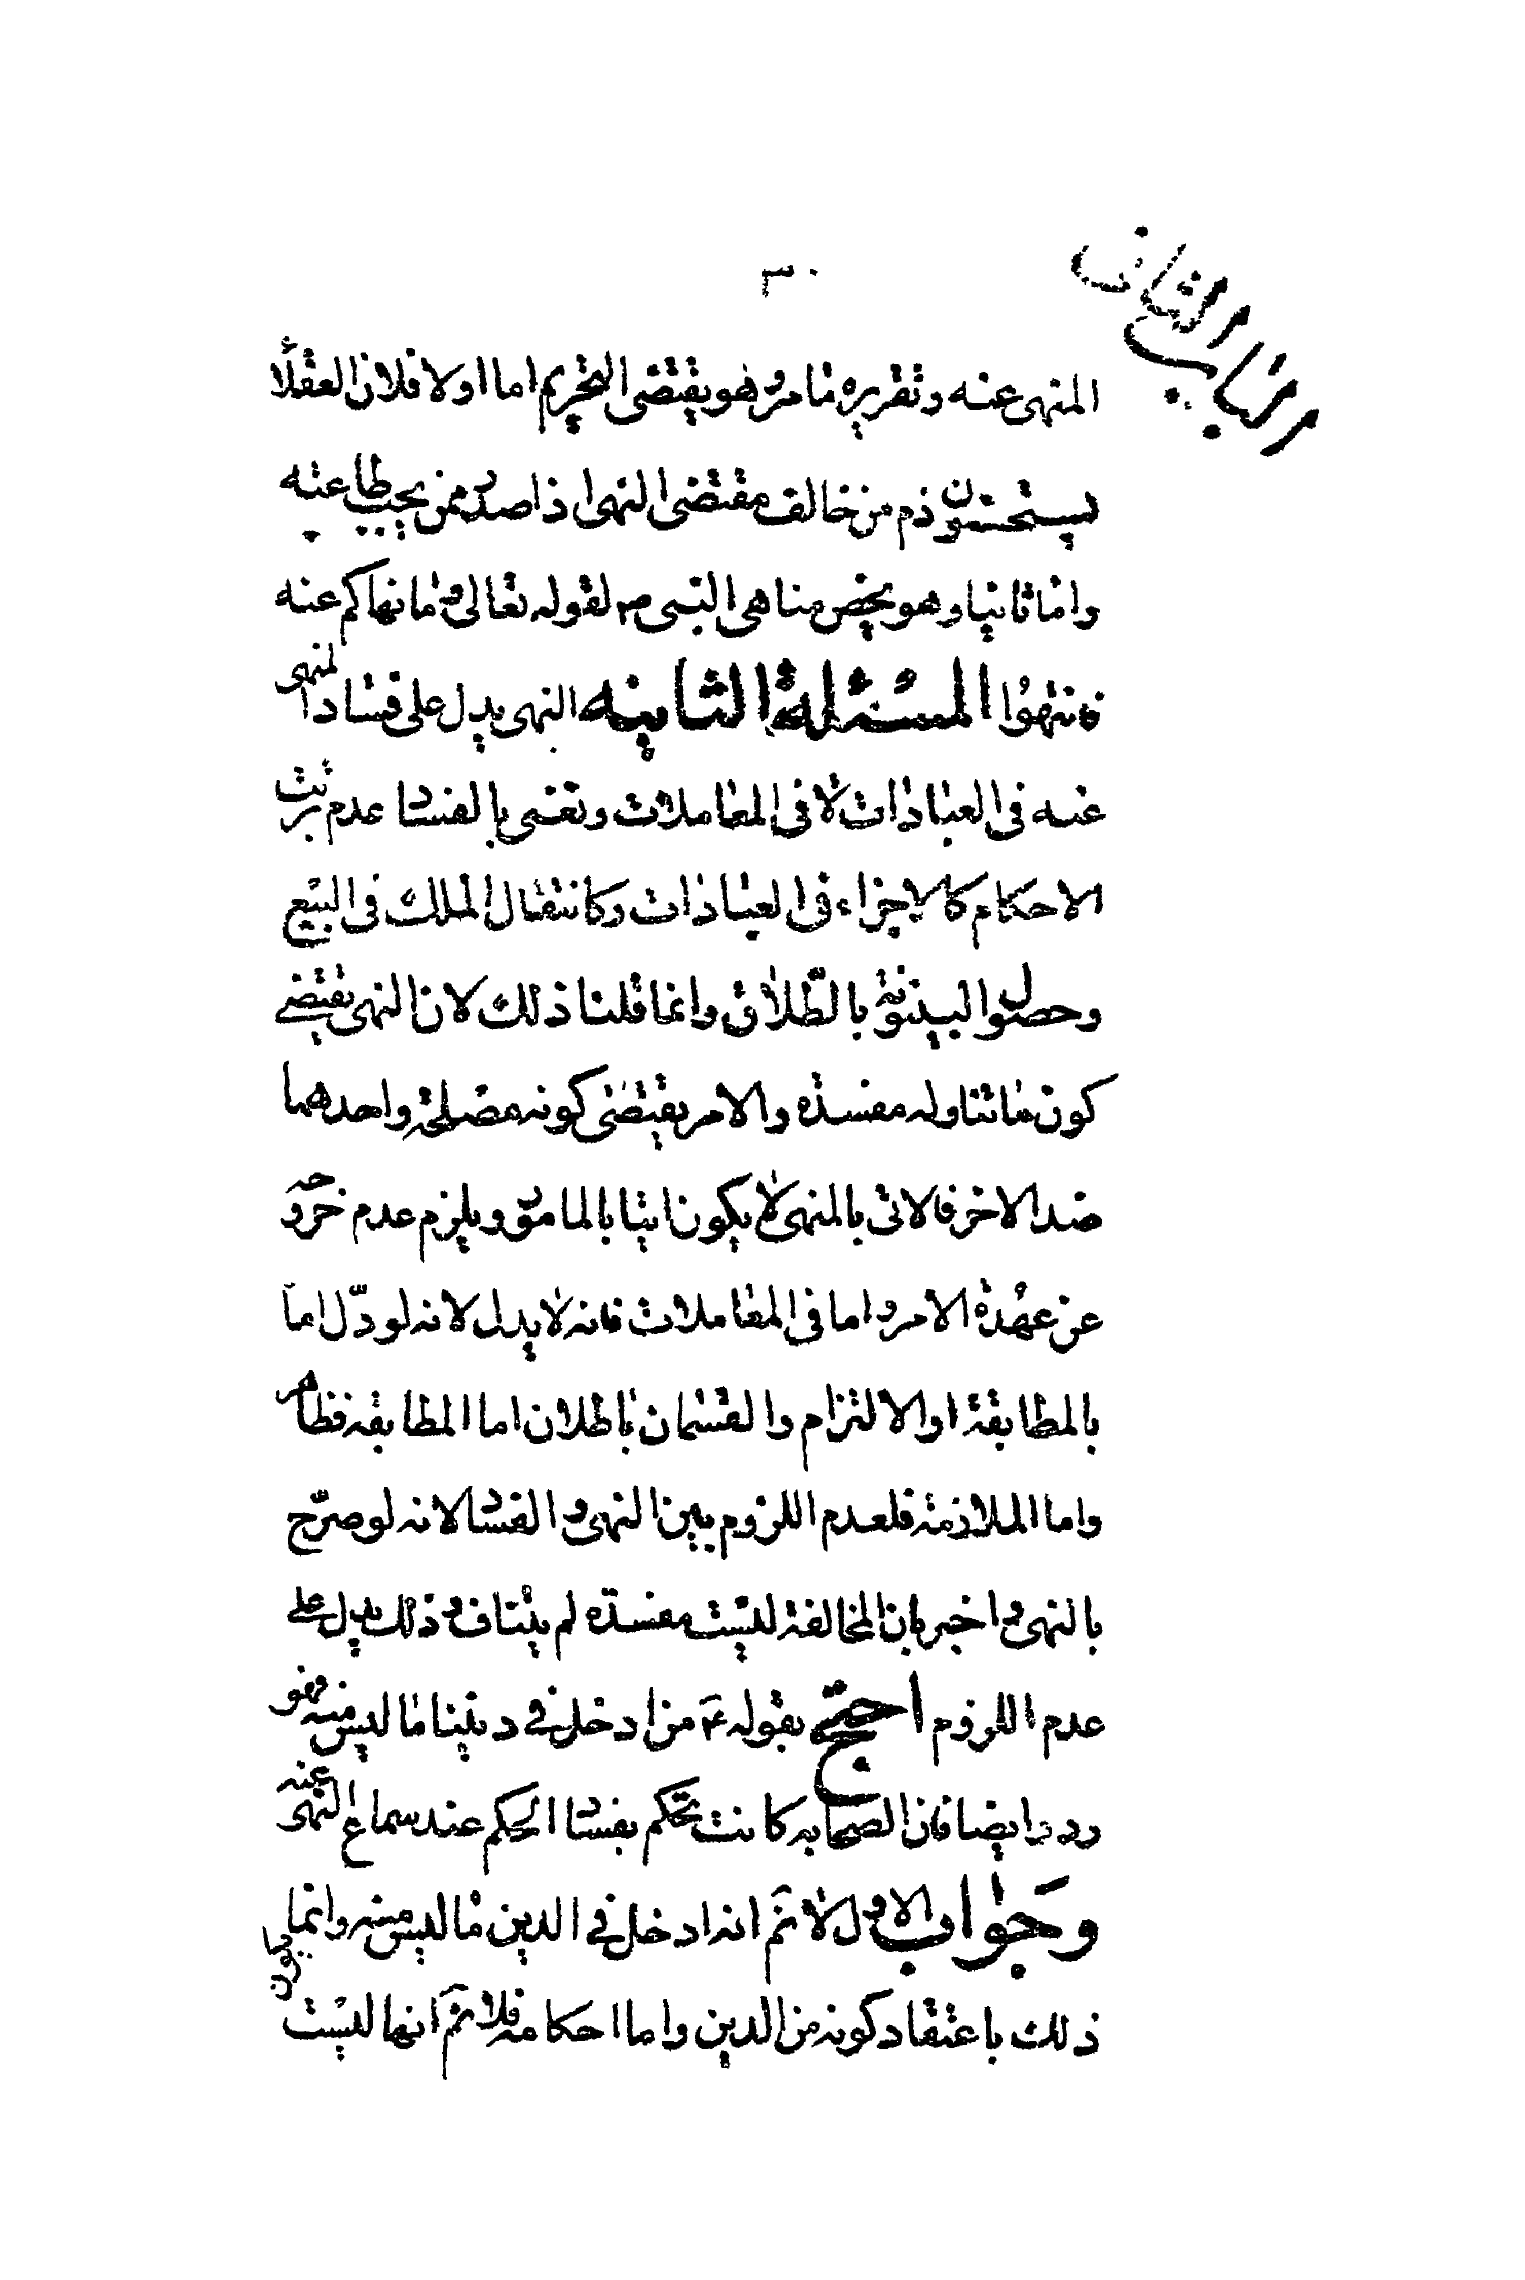 الباب الثانى
٣٠
المنهى عنه وتقريره ما مر وهو يقتضى التحريم اما اولا فلان العقلاء
يستحسنون ذم من خالف مقتضى النهى اذا صدر ممن يجب طاعته
واما ثانيا وهو يخص مناهى النبى ص لقوله تعالى وما نهاكم عنه
فانتهوا المسئلة الثانيه النهى يدل على فساد المنهى
عنه فى العبادات لا فى المعاملات ونعنى بالفساد عدم ترتب
الاحكام كالاجزاء فى العبادات وكانتقال الملك فى البيع
وحصول البينونة بالطلاق وانما قلنا ذلك لان النهى يقتضى
كون ما تناوله مفسدة والامر يقتضى كونه مصلحة واحدهما
ضد الاخر فالاتى بالمنهى لا يكون اتيا بالمامور ويلزم عدم خروجه
عن عهدة الامر واما فى المعاملات فانه لا يدل لانه لو دل اما
بالمطابقة او الالتزام والقسمان باطلان اما المطابقه فظاهر
واما الملازمة فلعدم اللزوم بين النهى والفساد لانه لو صرح
بالنهى واخبر بان المخالفة ليست مفسدة لم يتناف وذلك يدل على
عدم اللزوم احتج بقوله ع من ادخل فى ديننا ما ليس منه فهو
رد وايضا فان الصحابه كانت تحكم بفساد الحكم عند سماع النهى عنه
وجواب الاول لا نم انه ادخل فى الدين ما ليس منه وانما يكون
ذلك باعتقاد كونه من الدين واما احكامه فلا نم انها ليست